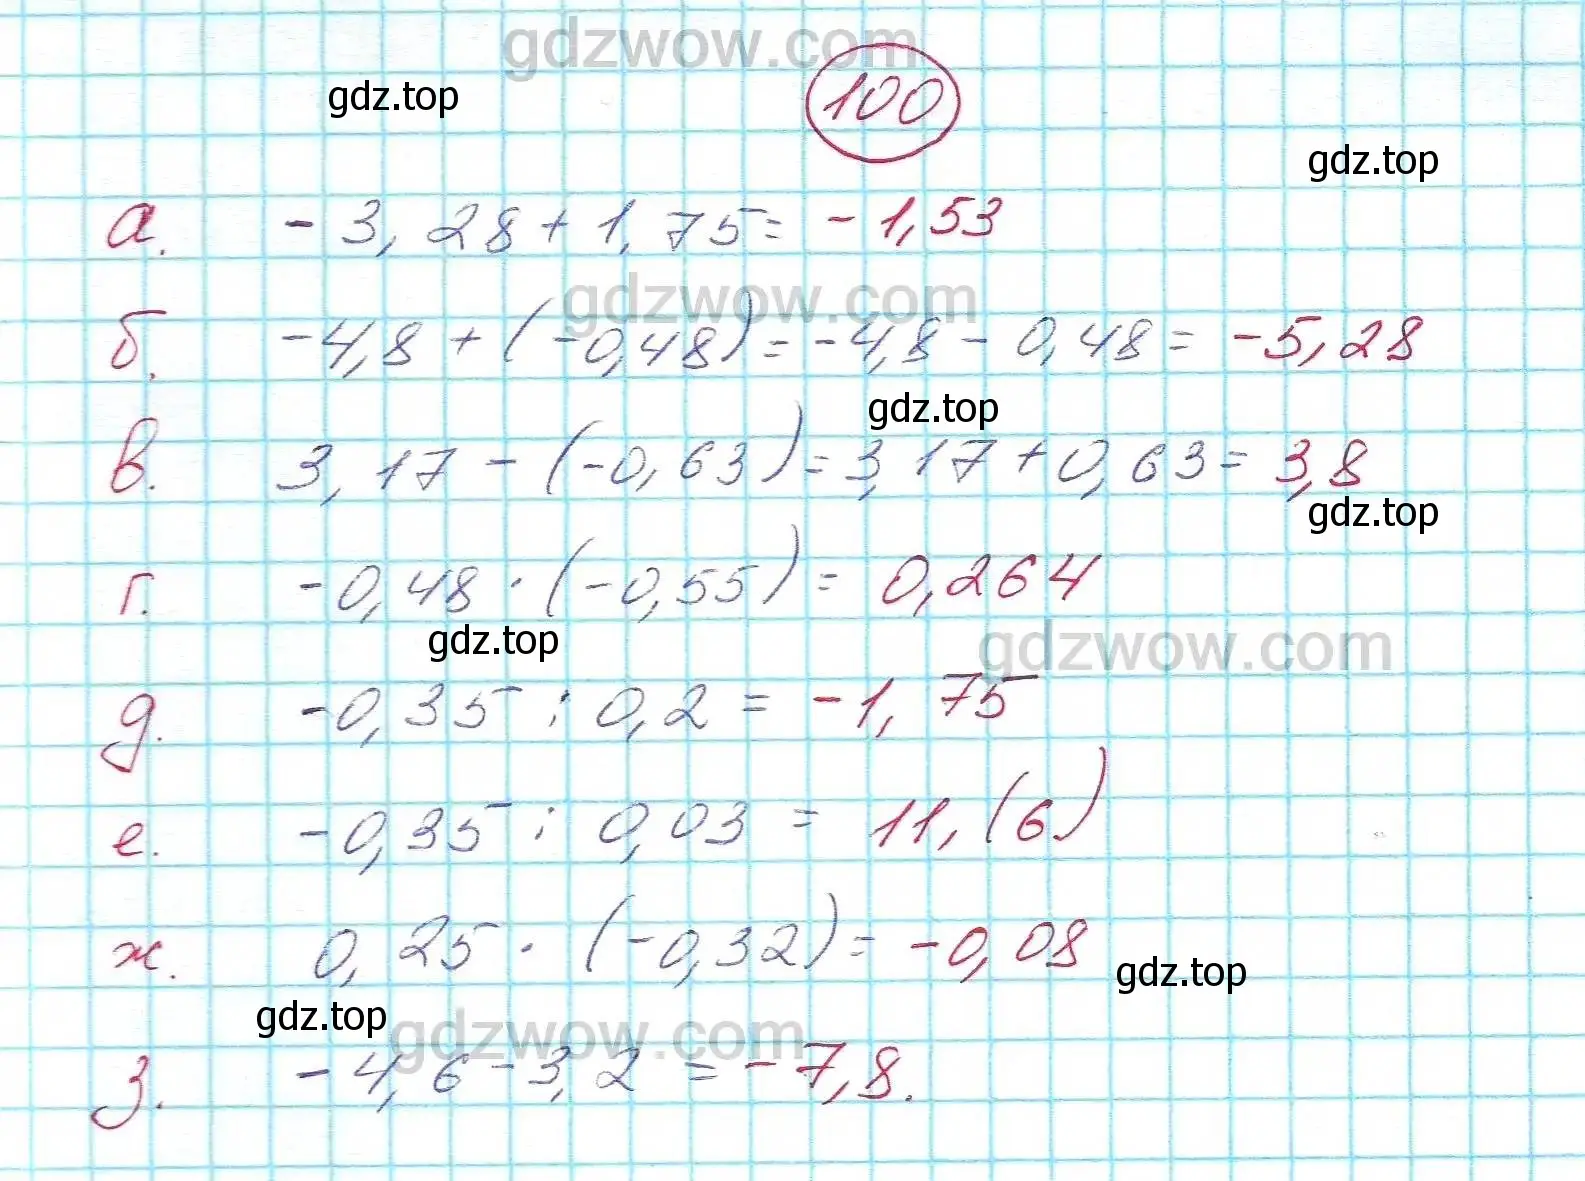 gdzwow.com
gdz.top
100
gdz.top
а. -3,28+1,75= -1,53
gdzwow.com
б. -4,8+(-0,48)=-4,8-0,48= -5,28
gdz.top
в. 3,17-(-0,63)=3,17+0,63= 3,8
gdz.top
г. -0,48·(-0,55)= 0,264
gdz.top
gdzwow.com
д. -0,35 : 0,2 = -1,75
е. -0,35 : 0,03 = 11,(6)
ж. 0,25·(-0,32)= -0,08
gdz.top
gdz.top
gdzwow.com
з. -4,6-3,2 = -7,8.